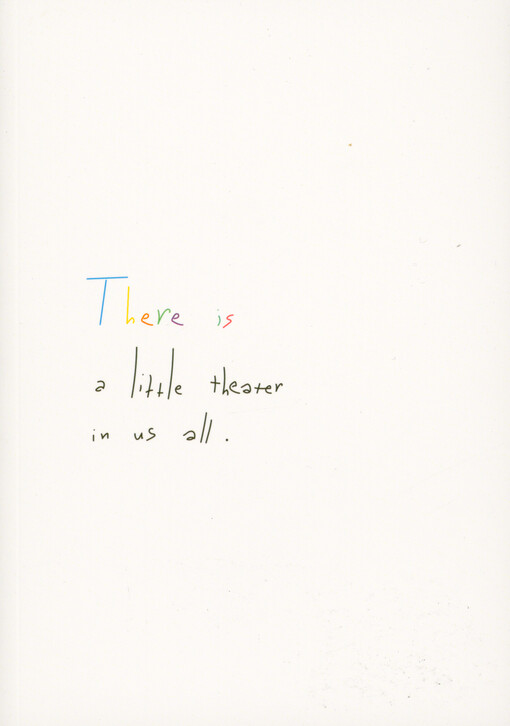 There is
a little theater
in us all.